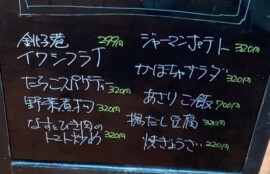 銚子港 299円
イワシフライ
たらこスパサラダ 320円
野菜煮物 320円
なすとひき肉の
トマト炒め 320円
ジャーマンポテト 320円
かぼちゃサラダ 320円
あさりご飯 700円
揚だし豆腐 320円
焼きょうざ 220円